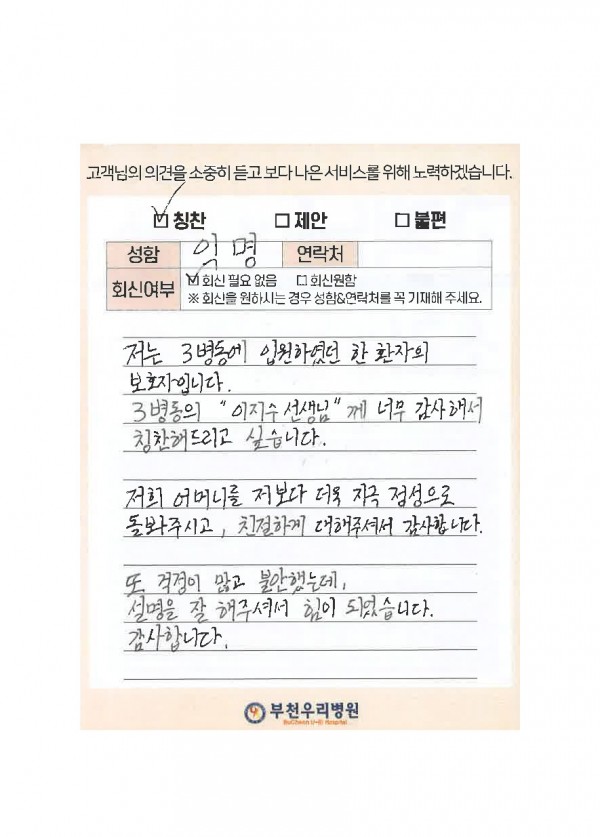 고객님의 의견을 소중히 듣고 보다 나은 서비스를 위해 노력하겠습니다.
☑ 칭찬 □ 제안 □ 불편
성함 익명 연락처
회신여부 ☑ 회신 필요 없음 □ 회신원함
※ 회신을 원하시는 경우 성함&연락처를 꼭 기재해 주세요.
저는 3병동에 입원하였던 한 환자의
보호자입니다.
3병동의 "이지수 선생님"께 너무 감사해서
칭찬해드리고 싶습니다.
저희 어머니를 저보다 더욱 지극 정성으로
돌봐주시고, 친절하게 대해주셔서 감사합니다.
또 걱정이 많고 불안했는데,
설명을 잘 해주셔서 힘이 되었습니다.
감사합니다.
부천우리병원
BuCheon U+Ri Hospital